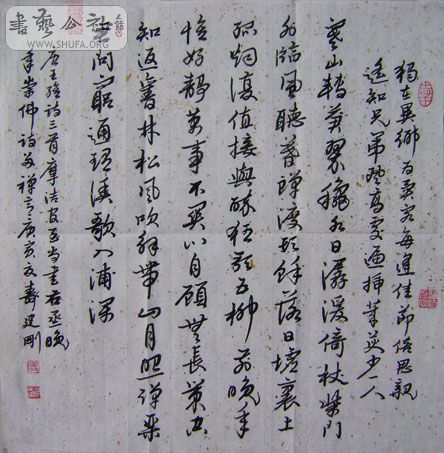 書藝公社
WWW.SHUFA.ORG
獨在異鄉为異客每逢佳節倍思親
遥知兄弟登高處遍插茱萸少人
寒山轉蒼翠秋水日潺湲倚杖柴門
外臨風聽暮蟬渡頭餘落日墟裏上
孤烟復值接輿醉狂歌五柳前晚年
惟好静萬事不関心自顧無長策空
知返舊林松風吹解帶山月照彈琴
君问窮通理漁歌入浦深
唐王維詩三首摩诘官至尚書右丞晚
年崇佛詩多禅意庚寅夏壽建剛